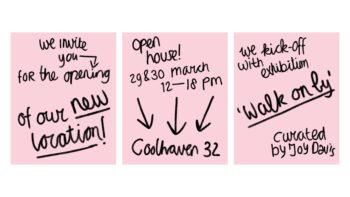 we invite
you
for the opening
of our new
location!
open
house!
29&30 march
12-18 pm
Coolhaven 32
we kick-off
with exhibition
'walk on by'
curated
by Joy Davis